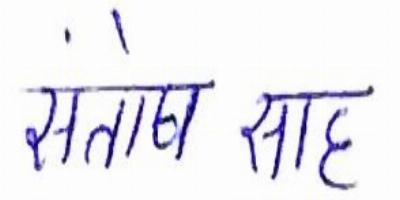 संतोष साह